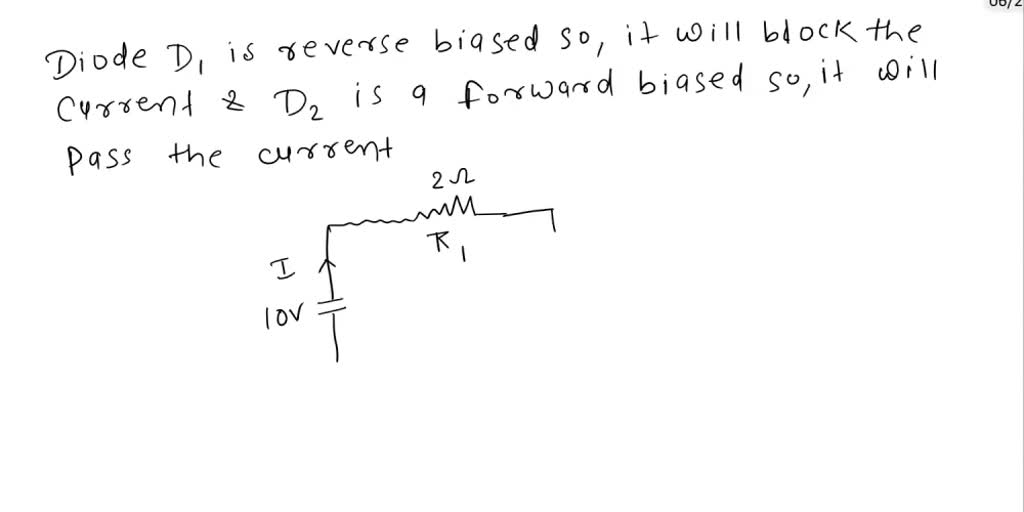 Diode D₁ is reverse biased so, it will block the
Current & D₂ is a forward biased so, it will
Pass the current
2Ω
R₁
I
10V